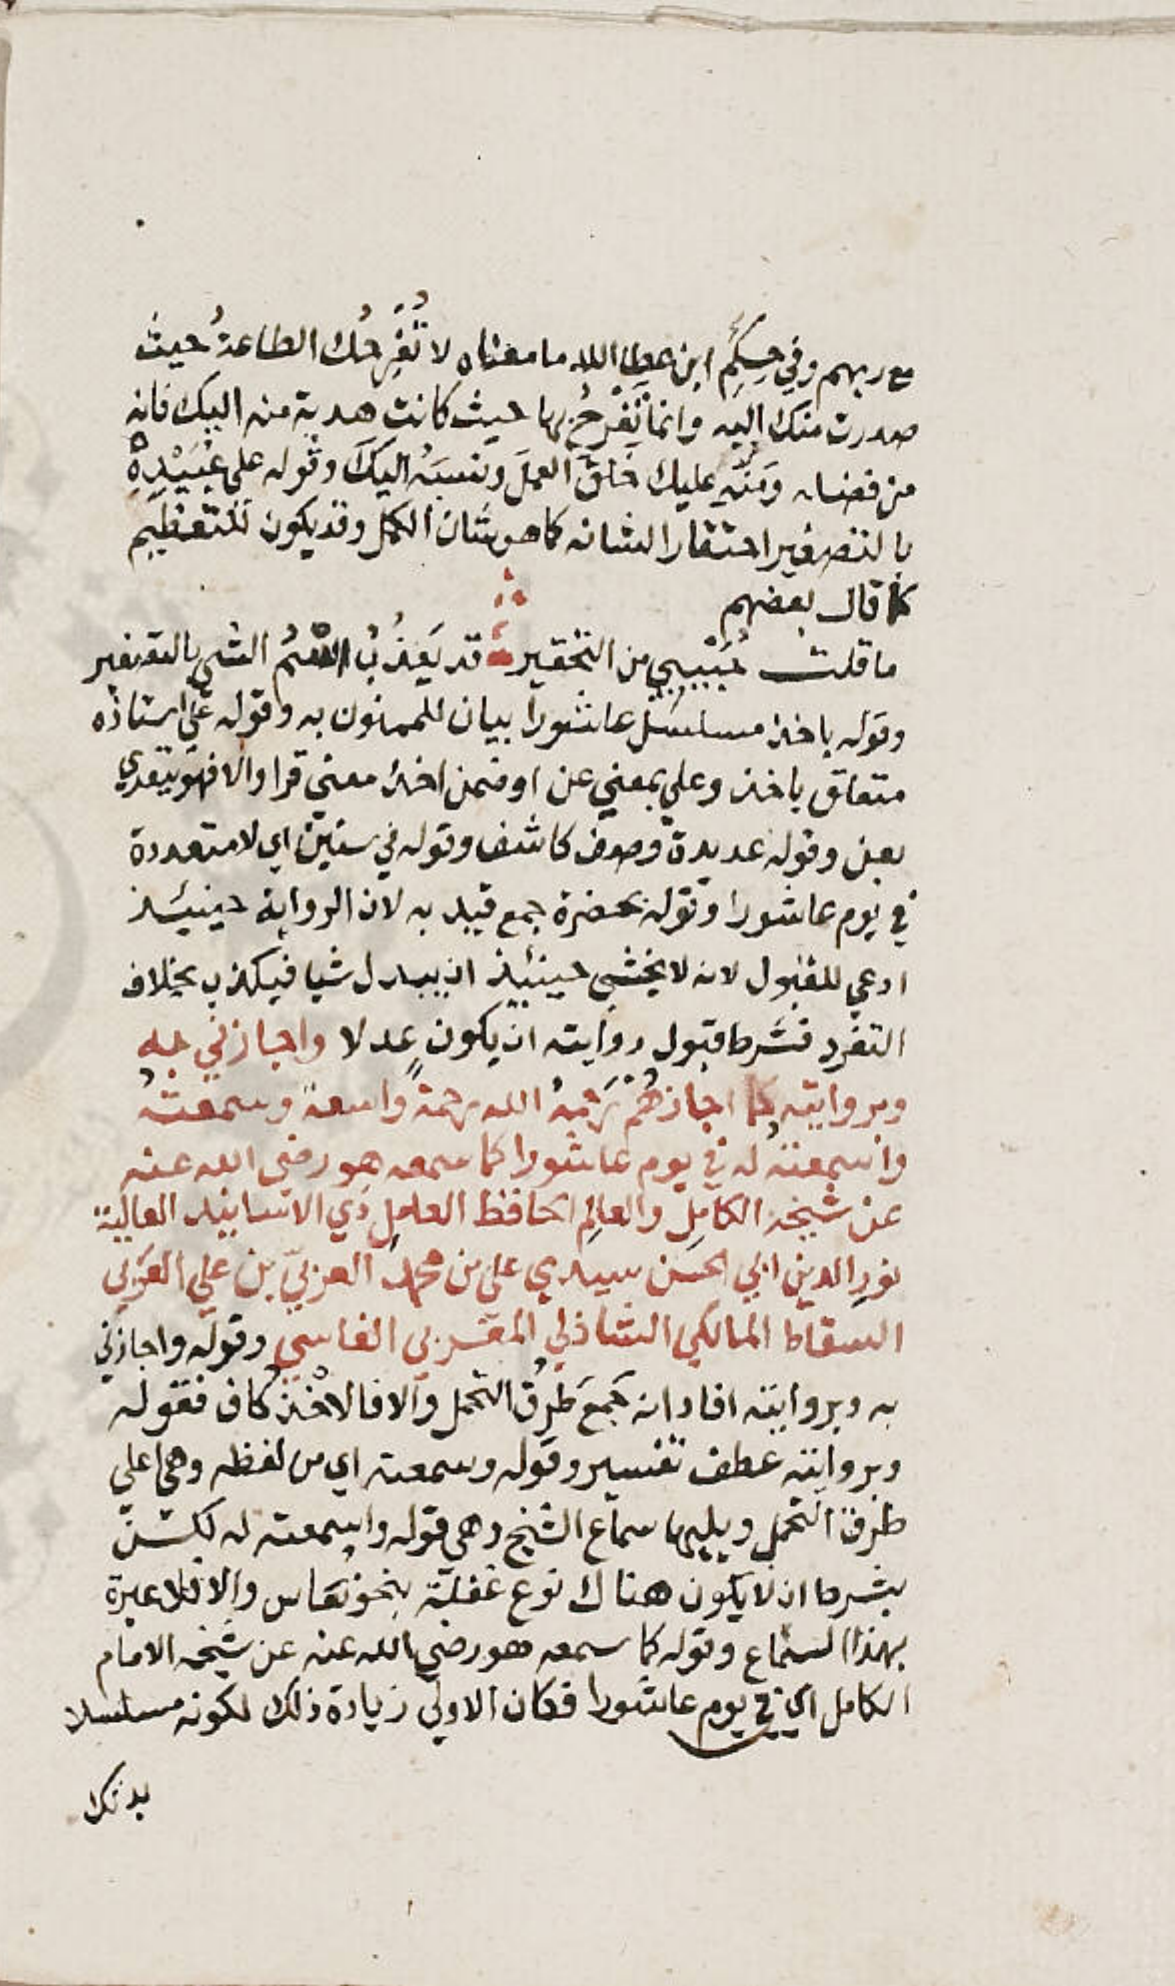 مع ربهم وفي حِكَمِ ابن عطا الله ما معناه لا تُفْرِحُك الطاعةُ حيث
صدرت منك اليه وانما تَفْرَحُ بها حيث كانت هدية منه اليك فانه
من فضله ومَنِّهِ عليك خَلَقَ العملَ ونسبَهُ اليكَ وقوله على عُبَيْدِهِ
بالتصغير احتقارا لشانه كما هو شان الكمل وقد يكون للتعظيم
كما قال بعضهم
ما قلت حُبَيِّبي من التحقير قد يَعْذُبُ اسْمُ الشي بالتصغير
وقوله باخذ مسلسل عاشورا بيان للممنون به وقوله على استاذه
متعلق باخذ وعلى بمعني عن او ضمن اخذ معني قرا والا فهو يتعدي
بعن وقوله عديدة وصف كاشف وقوله في سنين اي لا متعددة
في يوم عاشورا وقوله بحضرة جمع قيد به لان الرواية حينيئذ
ادعي للقبول لانه لا يخشي حينئيذ ان يبدل شيا فيكذب بخلاف
التفرد فشرط قبول روايته ان يكون عدلا واجازني به
وبروايته كما اجازهُم رَحِمَهُ الله رحمةً واسعةً وسمعتُه
واسمعتُه له في يوم عاشورا كما سمعه هو رضي الله عنه
عن شيخه الكامِلِ والعالِمِ الحافظ العاملِ ذي الاسانيد العالية
نورِ الدين ابي الحسن سيدي علي بن محمد العربيّ بن علي العَرَبي
السقاط المالكي الشاذلي المغربي الفاسي وقوله واجازني
به وبروايته افاد انه جَمَعَ طُرُقَ التحمل والا فالاخْذ كاف فقوله
وبروايته عطف تفسير وقوله وسمعته اي من لفظه وهي اعلي
طرق التحمل ويليها سماع الشيخ وهي قوله واسمعته له لكنْ
بشرط ان لا يكون هناك نوع غفلة بنحو نعاس والا فلا عبرة
بهذا السماع وقوله كما سمعه هو رضي الله عنه عن شيخه الامام
الكامل اي في يوم عاشورا فكان الاولي زيادة ذلك لكونه مسلسلا
بذلك